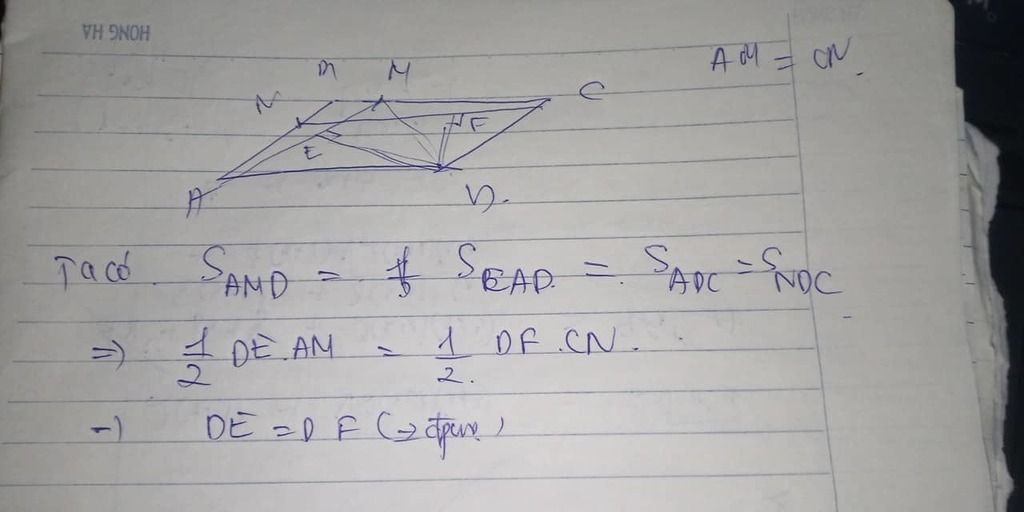 HONG HA
AM = CN.
B M
N C
E F
A D.
Ta có S_AMD = S_BAD = S_ADC = S_NDC
=> 1/2 DE.AM = 1/2. DF.CN.
-) DE = DF (-> đpcm)